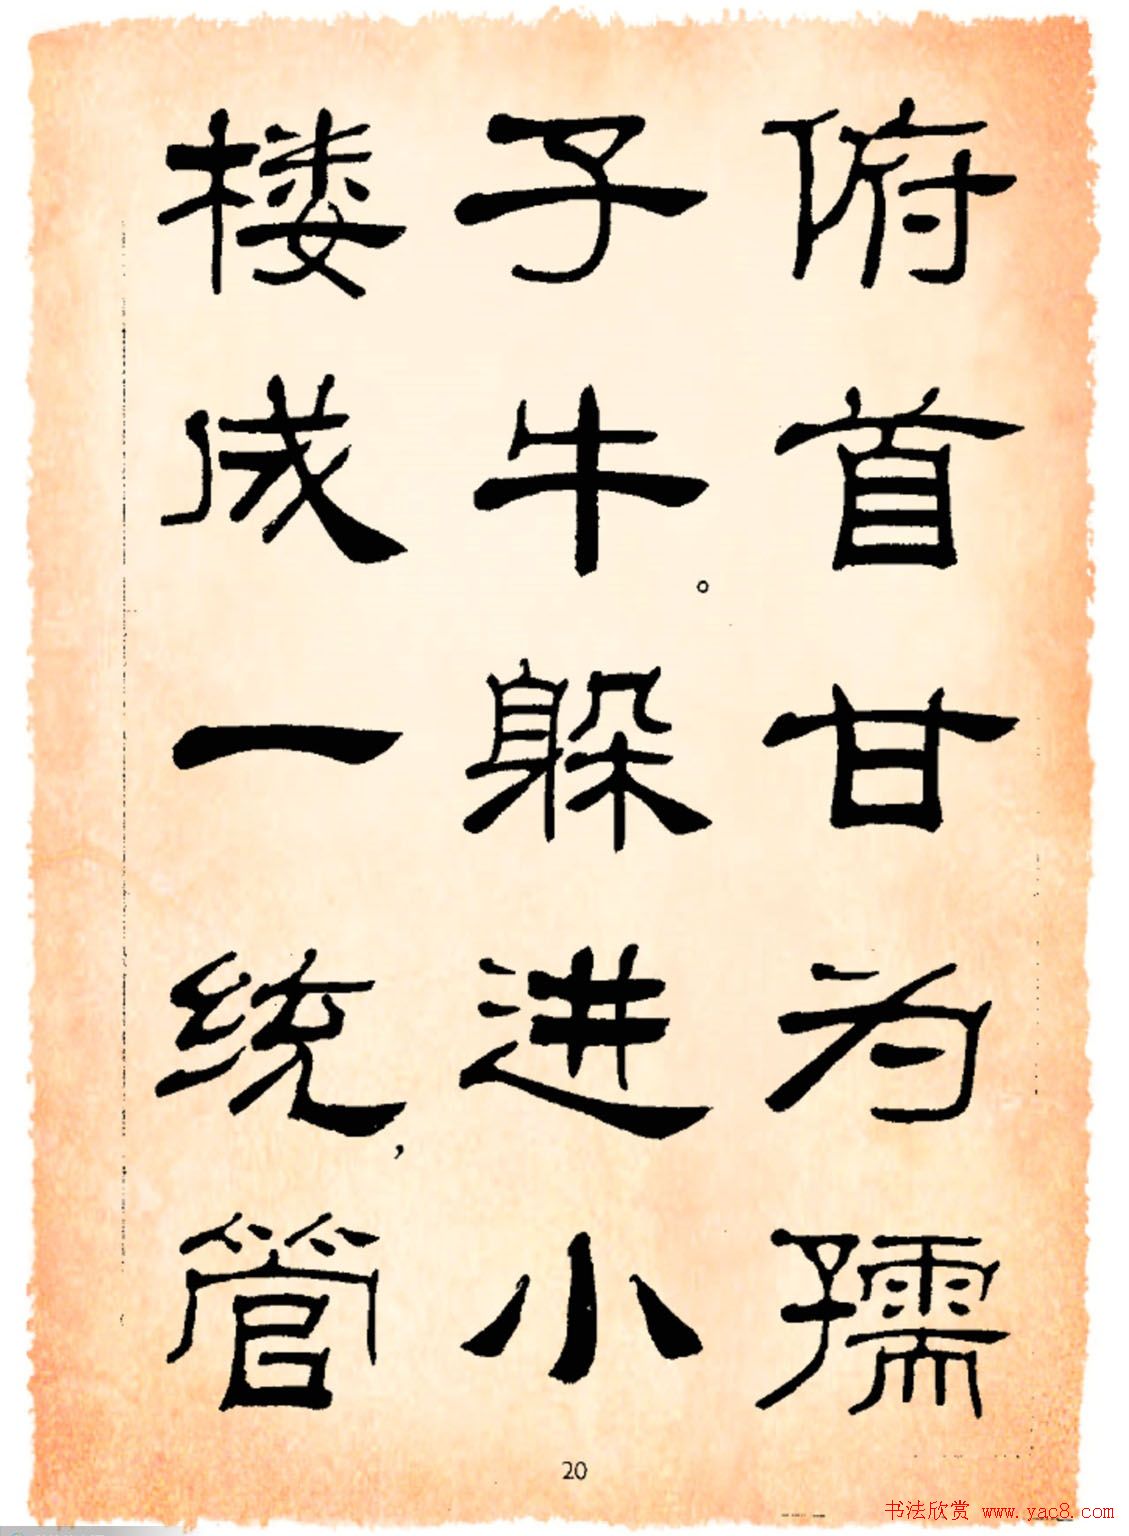 俯首甘为孺
子牛。躲进小
楼成一统，管
20
书法欣赏 www.yac8.com